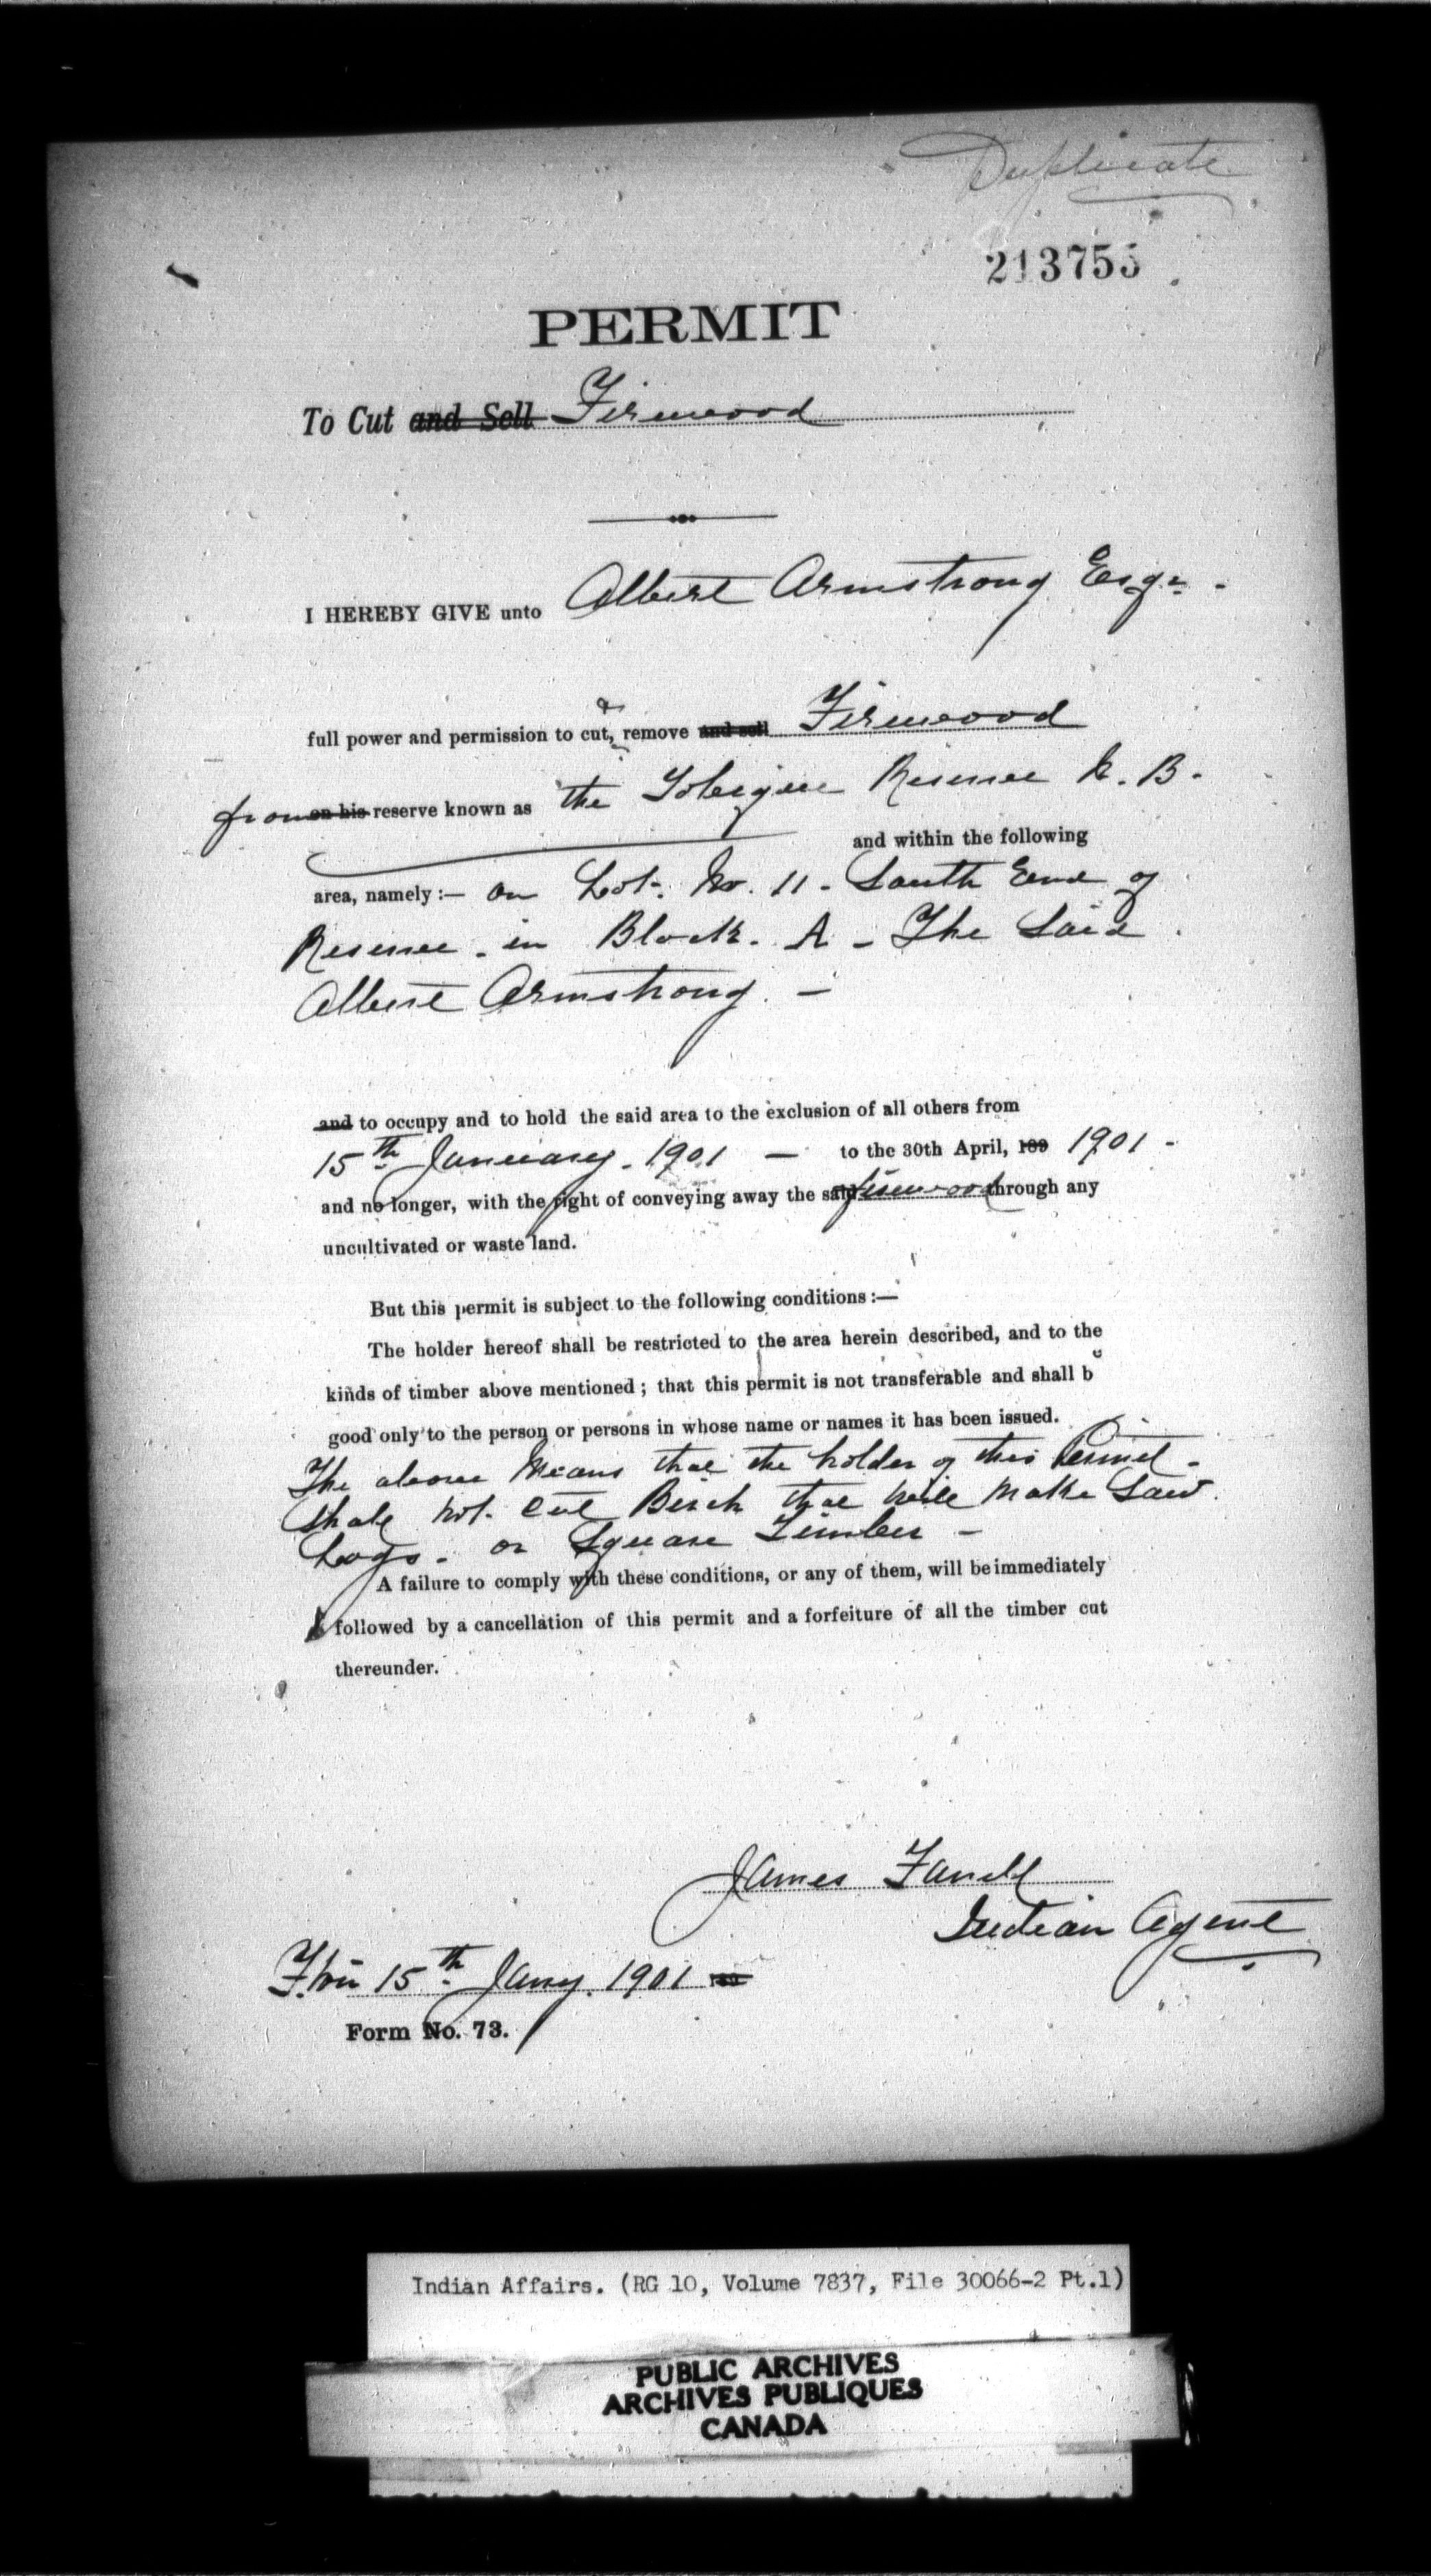 Duplicate
213755
PERMIT
To Cut and Sell Firewood
I HEREBY GIVE unto Albert Armstrong Esqr.
&
full power and permission to cut, remove and sell Firewood
from on his reserve known as the Tobique Reserve N. B.
and within the following
area, namely:— on Lot. No. 11 - South End of
Reserve - in Block. A - The Said
Albert Armstrong. -
and to occupy and to hold the said area to the exclusion of all others from
15th January. 1901 — to the 30th April, 189 1901 -
and no longer, with the right of conveying away the said firewood through any
uncultivated or waste land.
But this permit is subject to the following conditions:—
The holder hereof shall be restricted to the area herein described, and to the
kinds of timber above mentioned; that this permit is not transferable and shall be
good only to the person or persons in whose name or names it has been issued.
The above Means that the holder of this Permit -
Shall not. Cut Birch that will Make Saw
Logs. or Square Timber -
A failure to comply with these conditions, or any of them, will be immediately
followed by a cancellation of this permit and a forfeiture of all the timber cut
thereunder.
James Farrell
Indian Agent
F.ton 15th Jany. 1901
Form No. 73.
Indian Affairs. (RG 10, Volume 7837, File 30066-2 Pt.1)
PUBLIC ARCHIVES
ARCHIVES PUBLIQUES
CANADA